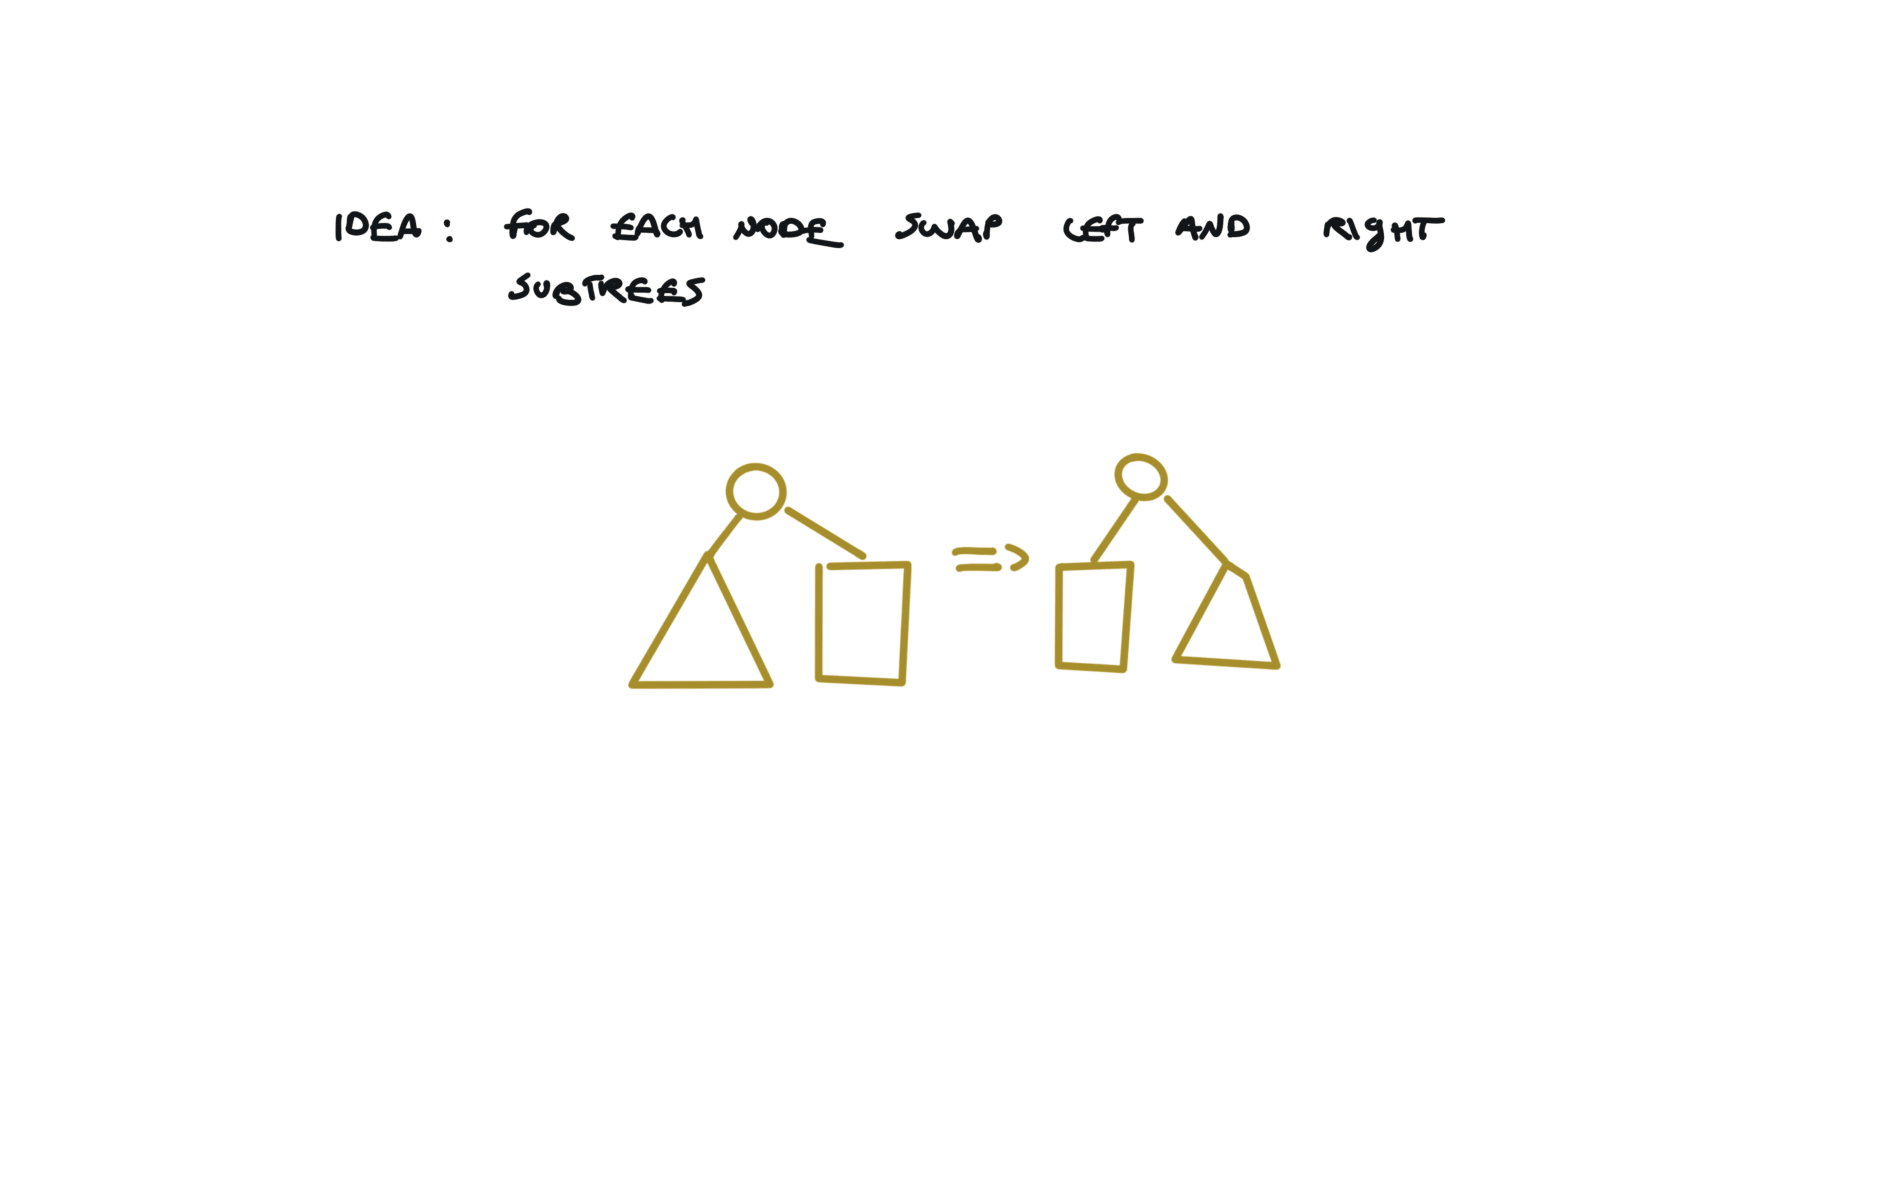 IDEA: FOR EACH NODE SWAP LEFT AND RIGHT
SUBTREES